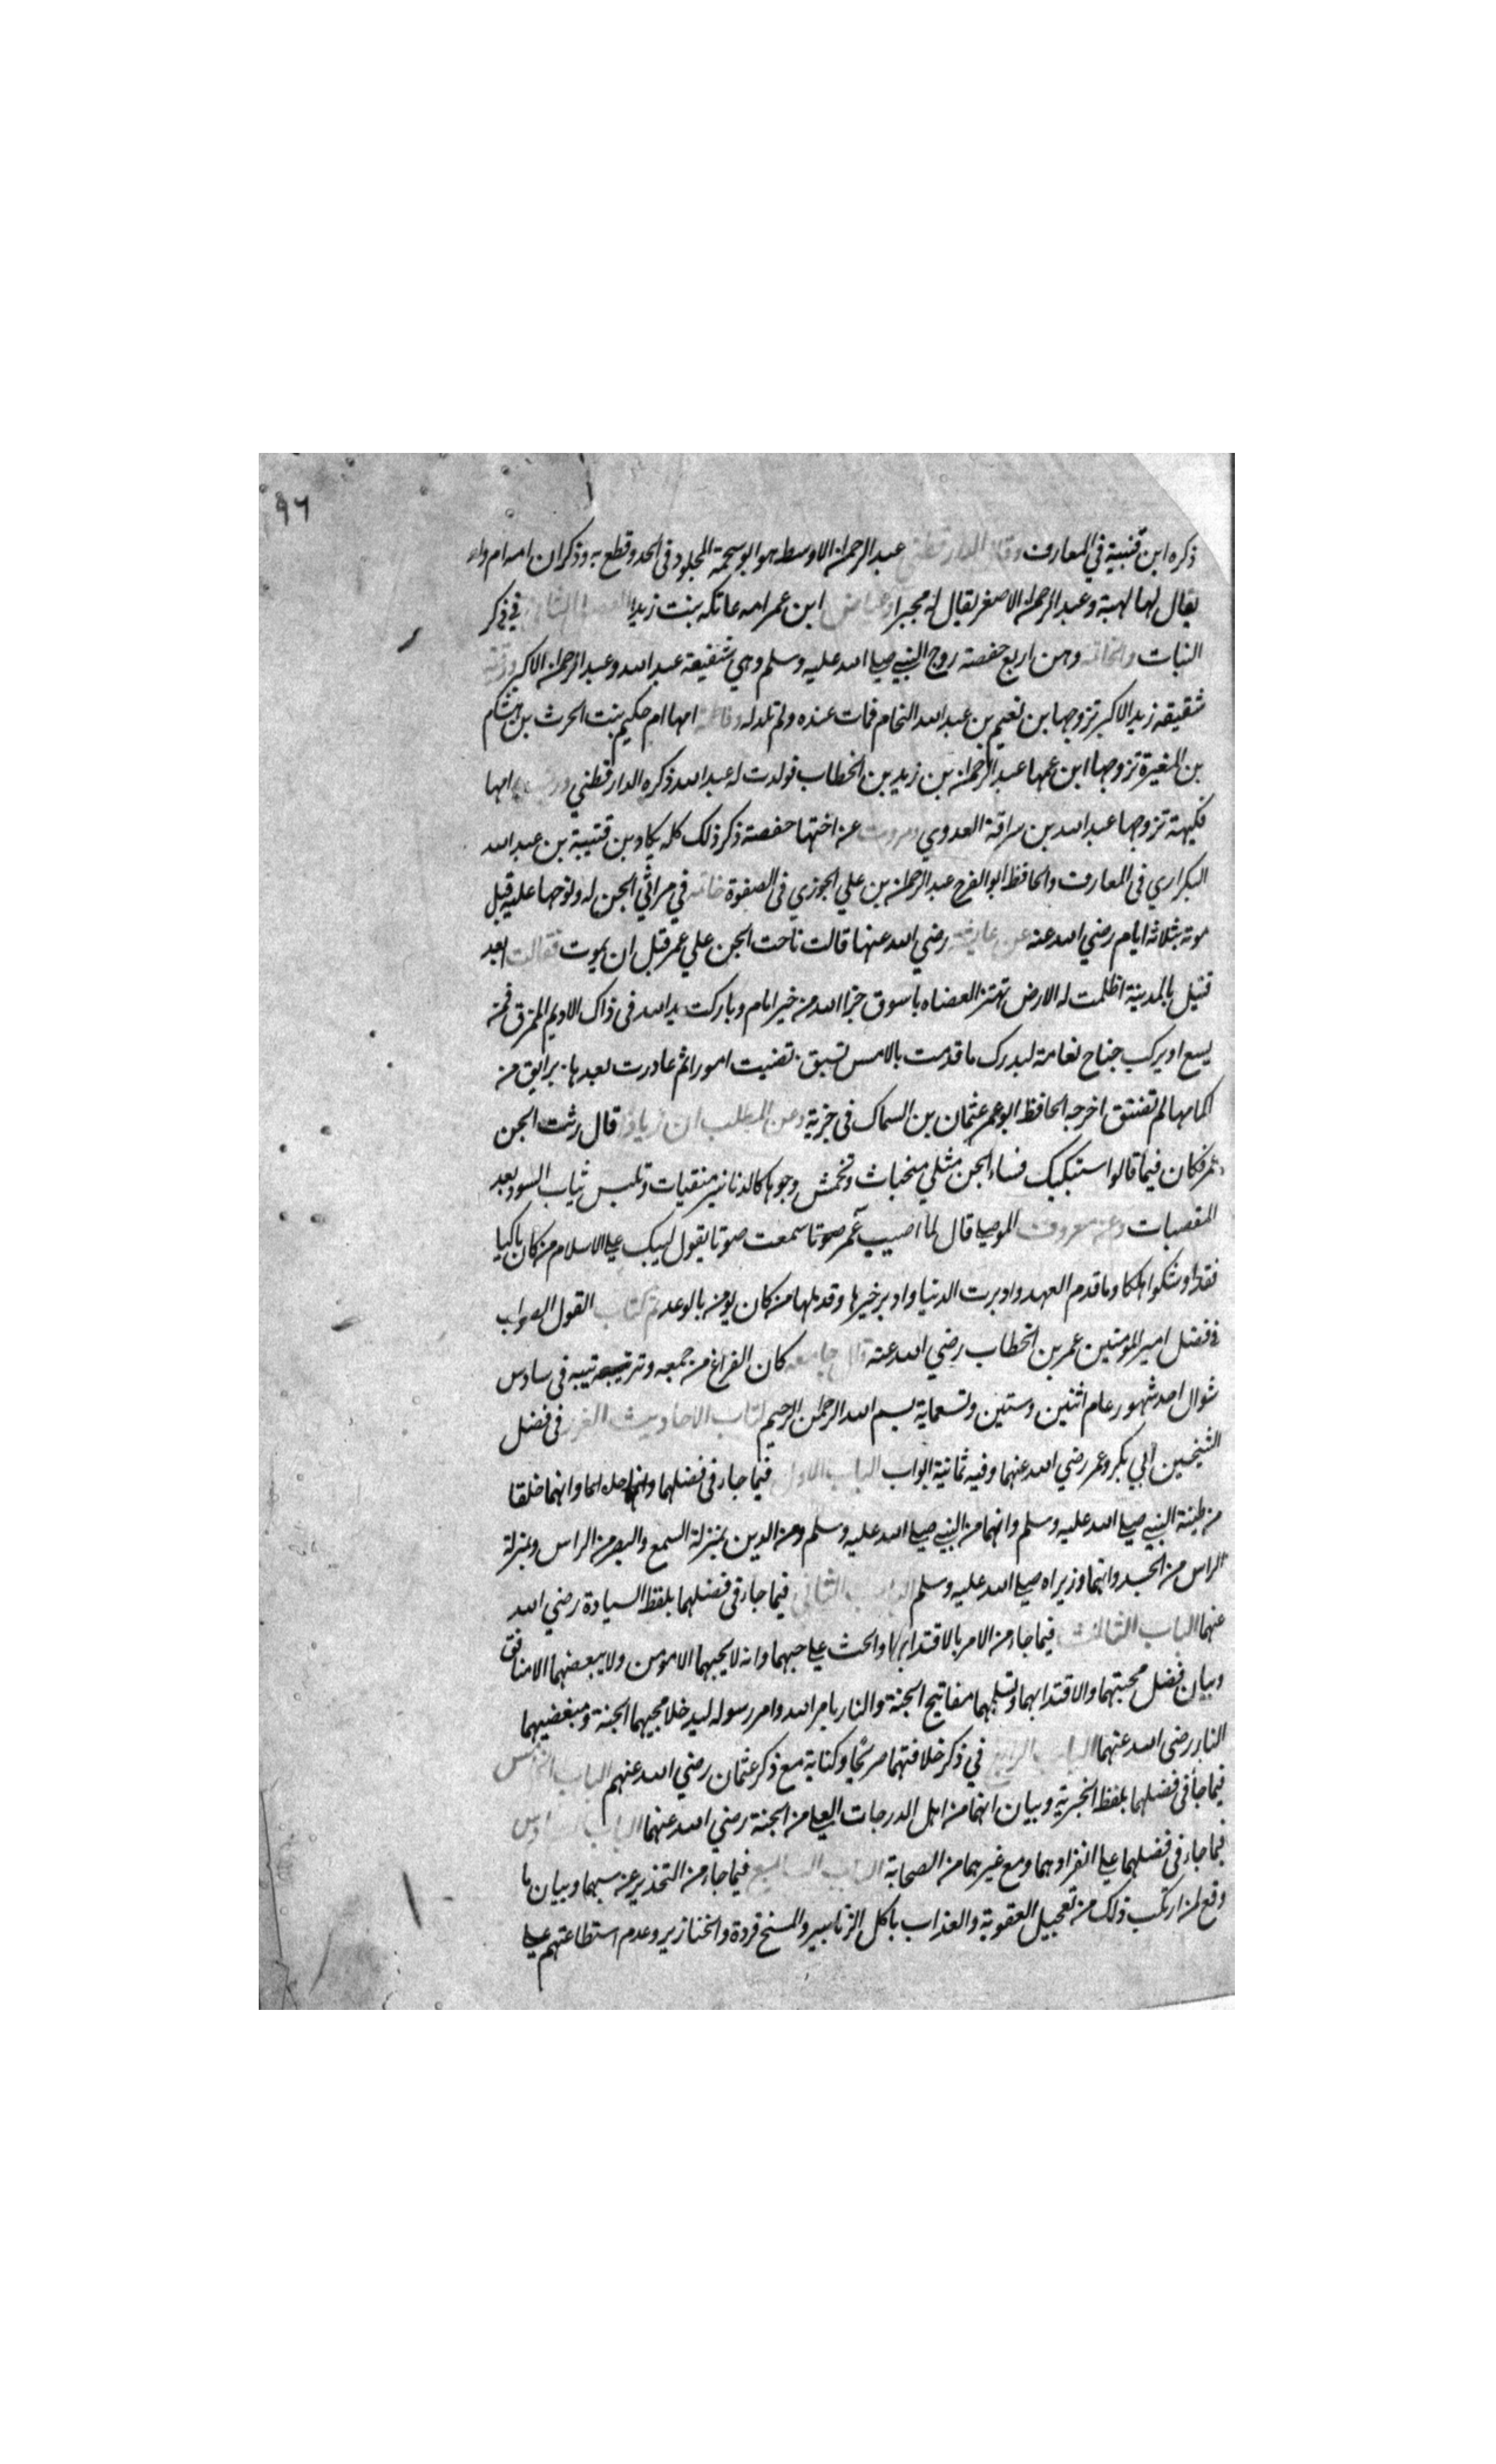 ٩٦
ذكره ابن قتيبة في المعارف وقال الدارقطني عبد الرحمن الاوسط هو ابو سحمة المجلود في الحد وقطع به وذكر ان امه ام ولد
يقال لها لهبة وعبد الرحمن الاصغر يقال له مجبرا وعياض ابن عمر امه عاتكه بنت زيد الفصل الثاني في ذكر
البنات والخاتمه وهن اربع حفصة زوج النبي صلى الله عليه وسلم وهي شقيقة عبد الله وعبد الرحمن الاكبر ورقية
شقيقه زيد الاكبر تزوجها بن نعيم بن عبد الله النحام فماتت عنده ولم تلد له وفاطمة امها ام حكيم بنت الحرث بن هشام
بن المغيرة تزوجها ابن عمها عبد الرحمن بن زيد بن الخطاب فولدت له عبد الله ذكره الدارقطني وزينب امها
فكيهة تزوجها عبد الله بن سراقة العدوي وروت عن اختها حفصة ذكر ذلك كله بن قتيبة بن عبد الله
في المعارف والحافظ ابو الفرج عبد الرحمن بن علي الجوزي في الصفوة خاتمه في مراثي الجن له ونوحها عليه قبل
موته بثلاثة ايام رضي الله عنه عن عايشة رضي الله عنها قالت ناحت الجن علي عمر قبل ان يموت فقالت ابعد
قتيل بالمدينة اظلمت له الارض تهتز العضاه باسوق جزا الله من خير امام وباركت يد الله في ذاك الاديم الممزق فمن
يسع او يركب جناح نعامة ليدرك ما قدمت بالامس تسبق قضيت امورا ثم غادرت بعدها بوايق من
اكمامها لم تفتق اخرجه الحافظ ابو عمر عثمان بن السماك في جزية وعن المطلب ابن زياد قال رثت الجن
عمر فكان فيما قالوا ستبكيك نساء الجن مثلي منحبات وتخمش وجوها كالدنانير منقيات وتلبس ثياب السود بعد
المقصبات وعن معروف الموصلي قال لما اصيب عمر صوتا سمعت صوتا يقول ليبك على الاسلام من كان باكيا
فقد اوشكوا هلكا وما قدم العهد وادبرت الدنيا وادبر خيرها وقد ملها من كان يومن بالوعد تم كتاب القول الصواب
في فضل امير المومنين عمر بن الخطاب رضي الله عنه قال جامعه كان الفراغ من جمعه وترتيبه في سادس
شوال احد شهور عام اثنين وستين وتسعماية بسم الله الرحمن الرحيم كتاب الاحاديث الغرر في فضل
الشيخين ابي بكر وعمر رضي الله عنهما وفيه ثمانية ابواب الباب الاول فيما جاء في فضلهما وانهما خلقا
من طينة النبي صلى الله عليه وسلم وانهما من النبي صلى الله عليه وسلم ومن الدين بمنزلة السمع والبصر من الراس وبمنزلة
الراس من الجسد وانهما وزيراه صلى الله عليه وسلم الباب الثاني فيما جاء في فضلهما بلفظ السيادة رضي الله
عنهما الباب الثالث فيما جاء من الامر بالاقتدا بهما والحث على حبهما وانه لا يحبهما الا مومن ولا يبغضهما الا منافق
وبيان فضل محبتهما والاقتدا بهما وتسلمهما مفاتيح الجنة والنار بامر الله وامر رسوله ليدخلا محبيهما الجنة ومبغضيهما
النار رضي الله عنهما الباب الرابع في ذكر خلافتهما صريحًا وكناية مع ذكر عثمان رضي الله عنهم الباب الخامس
فيما جاء في فضلهما بلفظ الخيرية وبيان انهما من اهل الدرجات العلى من الجنة رضي الله عنهما الباب السادس
فيما جاء في فضلهما على انفرادهما ومع غيرهما من الصحابة الباب السابع فيما جاء من التحذير عن سبهما وبيان ما
وقع لمن ارتكب ذلك من تعجيل العقوبة والعذاب باكل الزنابير والمسخ قردة والخنازير وعدم استطاعتهم على